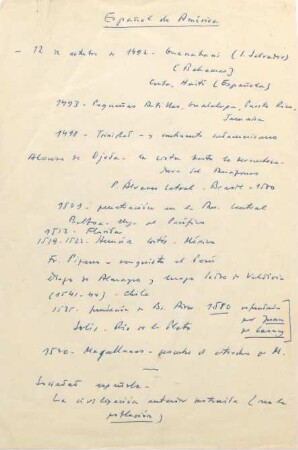 Español de América
- 12 de octubre de 1492 - Guanahaní (S. Salvador)
(Bahamas)
Cuba, Haití (Española)
1493 - Pequeñas Antillas, Guadalupe, Puerto Rico,
Jamaica
1498 - Trinidad - y continente suramericano
Alonso de Ojeda - la costa hasta la desemboca-
dura del Amazonas
P. Álvarez Cabral - Brasil - 1500
1509 - penetración en la Am. Central
Balboa - el Pacífico
1512 - Florida
1519-1522 - Hernán Cortés - México
Fr. Pizarro - conquista el Perú
Diego de Almagro y luego Pedro de Valdivia
(1541-44) - Chile
1535 - fundación de Bs. Aires 1580 refundada
por Juan
de Garay
Solís - Río de la Plata
1520 - Magallanes - el estrecho de M.
Sociedad española -
La civilización anterior destruida (no la
población)